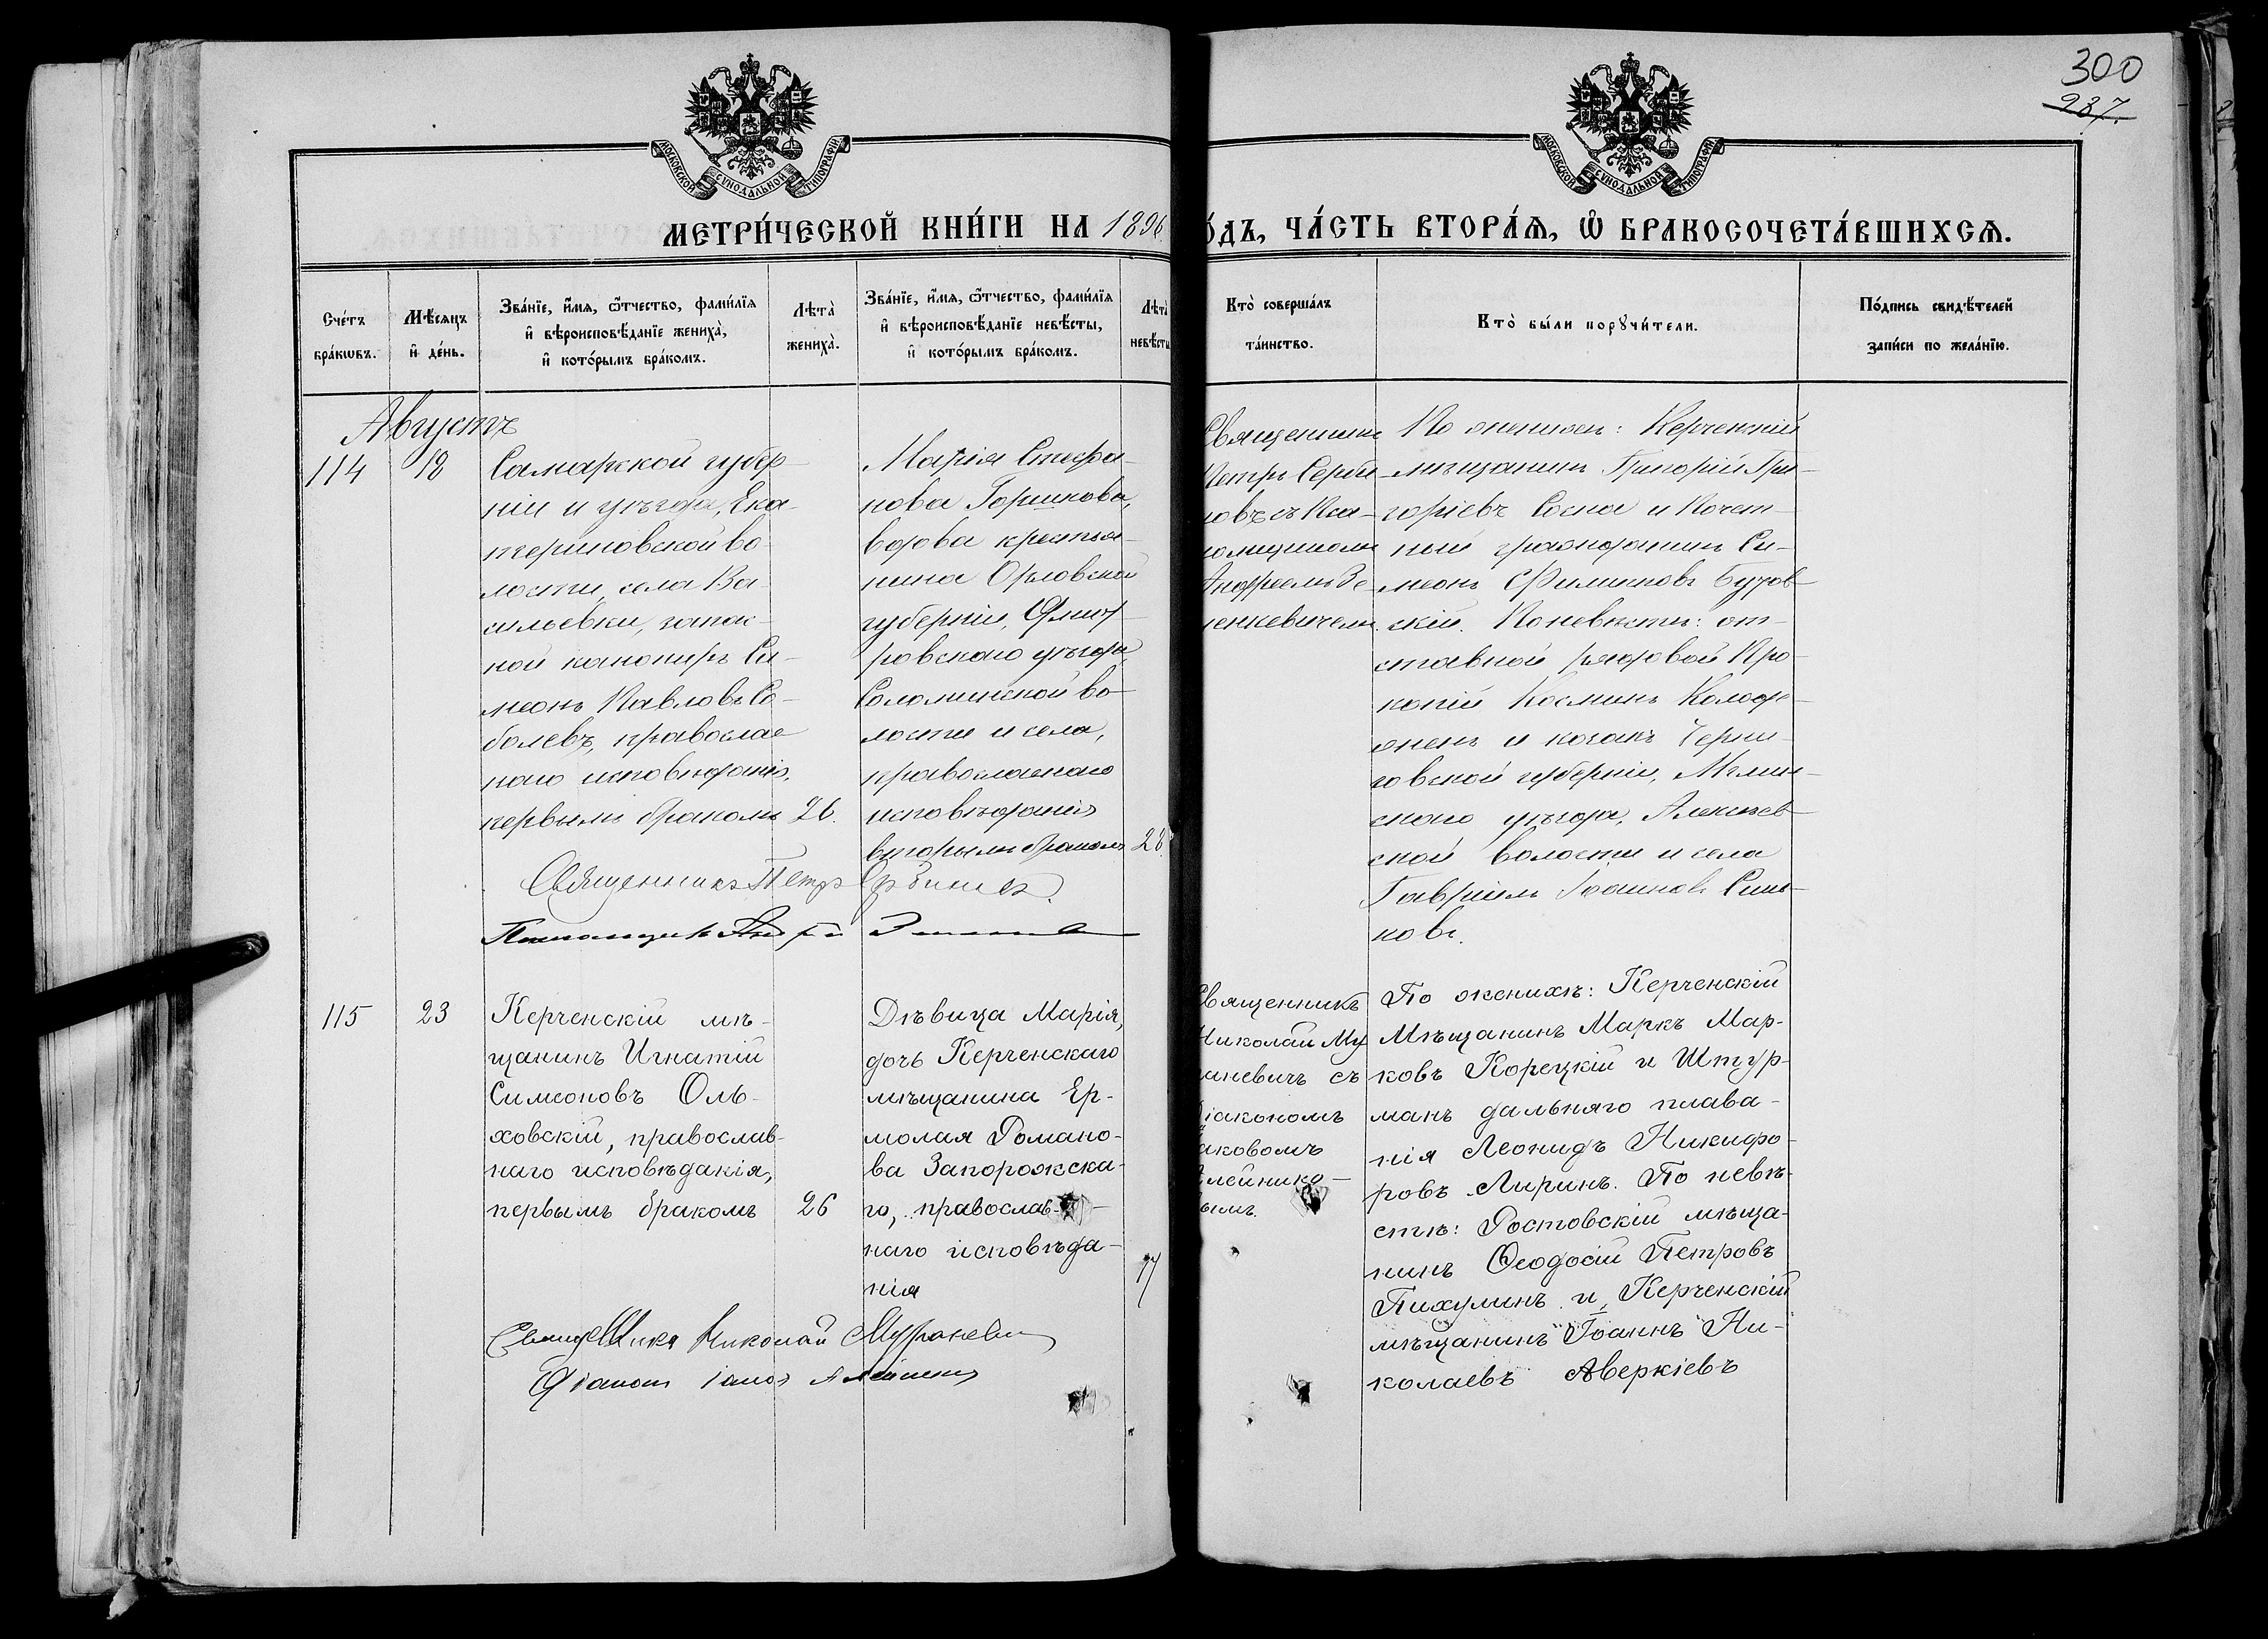 300
287.
МОСКОВСКОЙ СѴНОДАЛЬНОЙ ТИПОГРАФІИ
МОСКОВСКОЙ СѴНОДАЛЬНОЙ ТИПОГРАФІИ
МЕТРИ́ЧЕСКОЙ КНИ́ГИ НА 1896
О́ДЪ, ЧА́СТЬ ВТОРА́Ѧ, Ѡ҆ БРАКОСОЧЕТА́ВШИХСѦ.
Сче́тъ
бра́кѡвъ.
Мѣ́сѧцъ
и҆ де́нь.
Зва́нїе, и҆́мѧ, ѻ҆́тчество, фами́лїѧ
и҆ вѣроисповѣ́данїе жениха̀,
и҆ кото́рымъ бра́комъ.
Лѣта̀
жениха̀.
Зва́нїе, и҆́мѧ, ѻ҆́тчество, фами́лїѧ
и҆ вѣроисповѣ́данїе невѣ́сты,
и҆ кото́рымъ бра́комъ.
Лѣта̀
невѣ́сты
Кто̀ соверша́лъ
та́инство.
Кто̀ бы́ли порꙋчи́тели.
По́дпись свидѣ́телей
за́писи по жела́нїю.
Августъ
114
18
Самарской губер-
ніи и уѣзда, Ека-
териновской во-
лости, села Ва-
сильевки, запас-
ной канониръ Си-
меонъ Павловъ Со-
болевъ, православ
наго исповѣданія,
первымъ бракомъ
26.
Марія Стефа-
нова Горшкова,
вдова крестья-
нина Орловской
губерніи, Дмит-
ровскаго уѣзда,
Соломинской во-
лости и села,
православнаго
исповѣданія
вторымъ бракомъ
28.
Священникъ
Петръ Серби
новъ съ Пса-
ломщикомъ
Андреемъ Зе-
ленкевичемъ.
По женихѣ: Керченскій
мѣщанинъ Григорій Гри-
горіевъ Сосна и Почет-
ный гражданинъ Си-
меонъ Филиповъ Бузов-
скій. По невѣстѣ: от-
ставной рядовой Про-
копій Косминъ Колод-
женъ и козакъ Черни-
говской губерніи, Мглин-
скаго уѣзда, Алексѣев-
ской волости и села
Гавріилъ Іоанновъ Синь-
ковъ.
Священникъ Петръ Сербиновъ
Псаломщикъ Андрей
115
23
Керченскій мѣ-
щанинъ Игнатій
Симеоновъ Оль-
ховскій, православ-
наго исповѣданія,
первымъ бракомъ
26
Дѣвица Марія,
дочь Керченскаго
мѣщанина Ер-
молая Романо-
ва Запорожска-
го, православ-
наго исповѣда-
нія
Священникъ
Николай Му
аневичъ съ
Діакономъ
аковомъ
лейнико-
вымъ.
По женихѣ: Керченскій
Мѣщанинъ Маркъ Мар-
ковъ Корецкій и Штур-
манъ дальняго плава-
нія Леонидъ Никифо-
ровъ Лиринъ. По невѣ-
стѣ: Ростовскій мѣща-
нинъ Ѳеодосій Петровъ
Пихулинъ и Керченскій
мѣщанинъ Іоаннъ Ни-
колаевъ Аверкіевъ
Священникъ Николай
Діаконъ